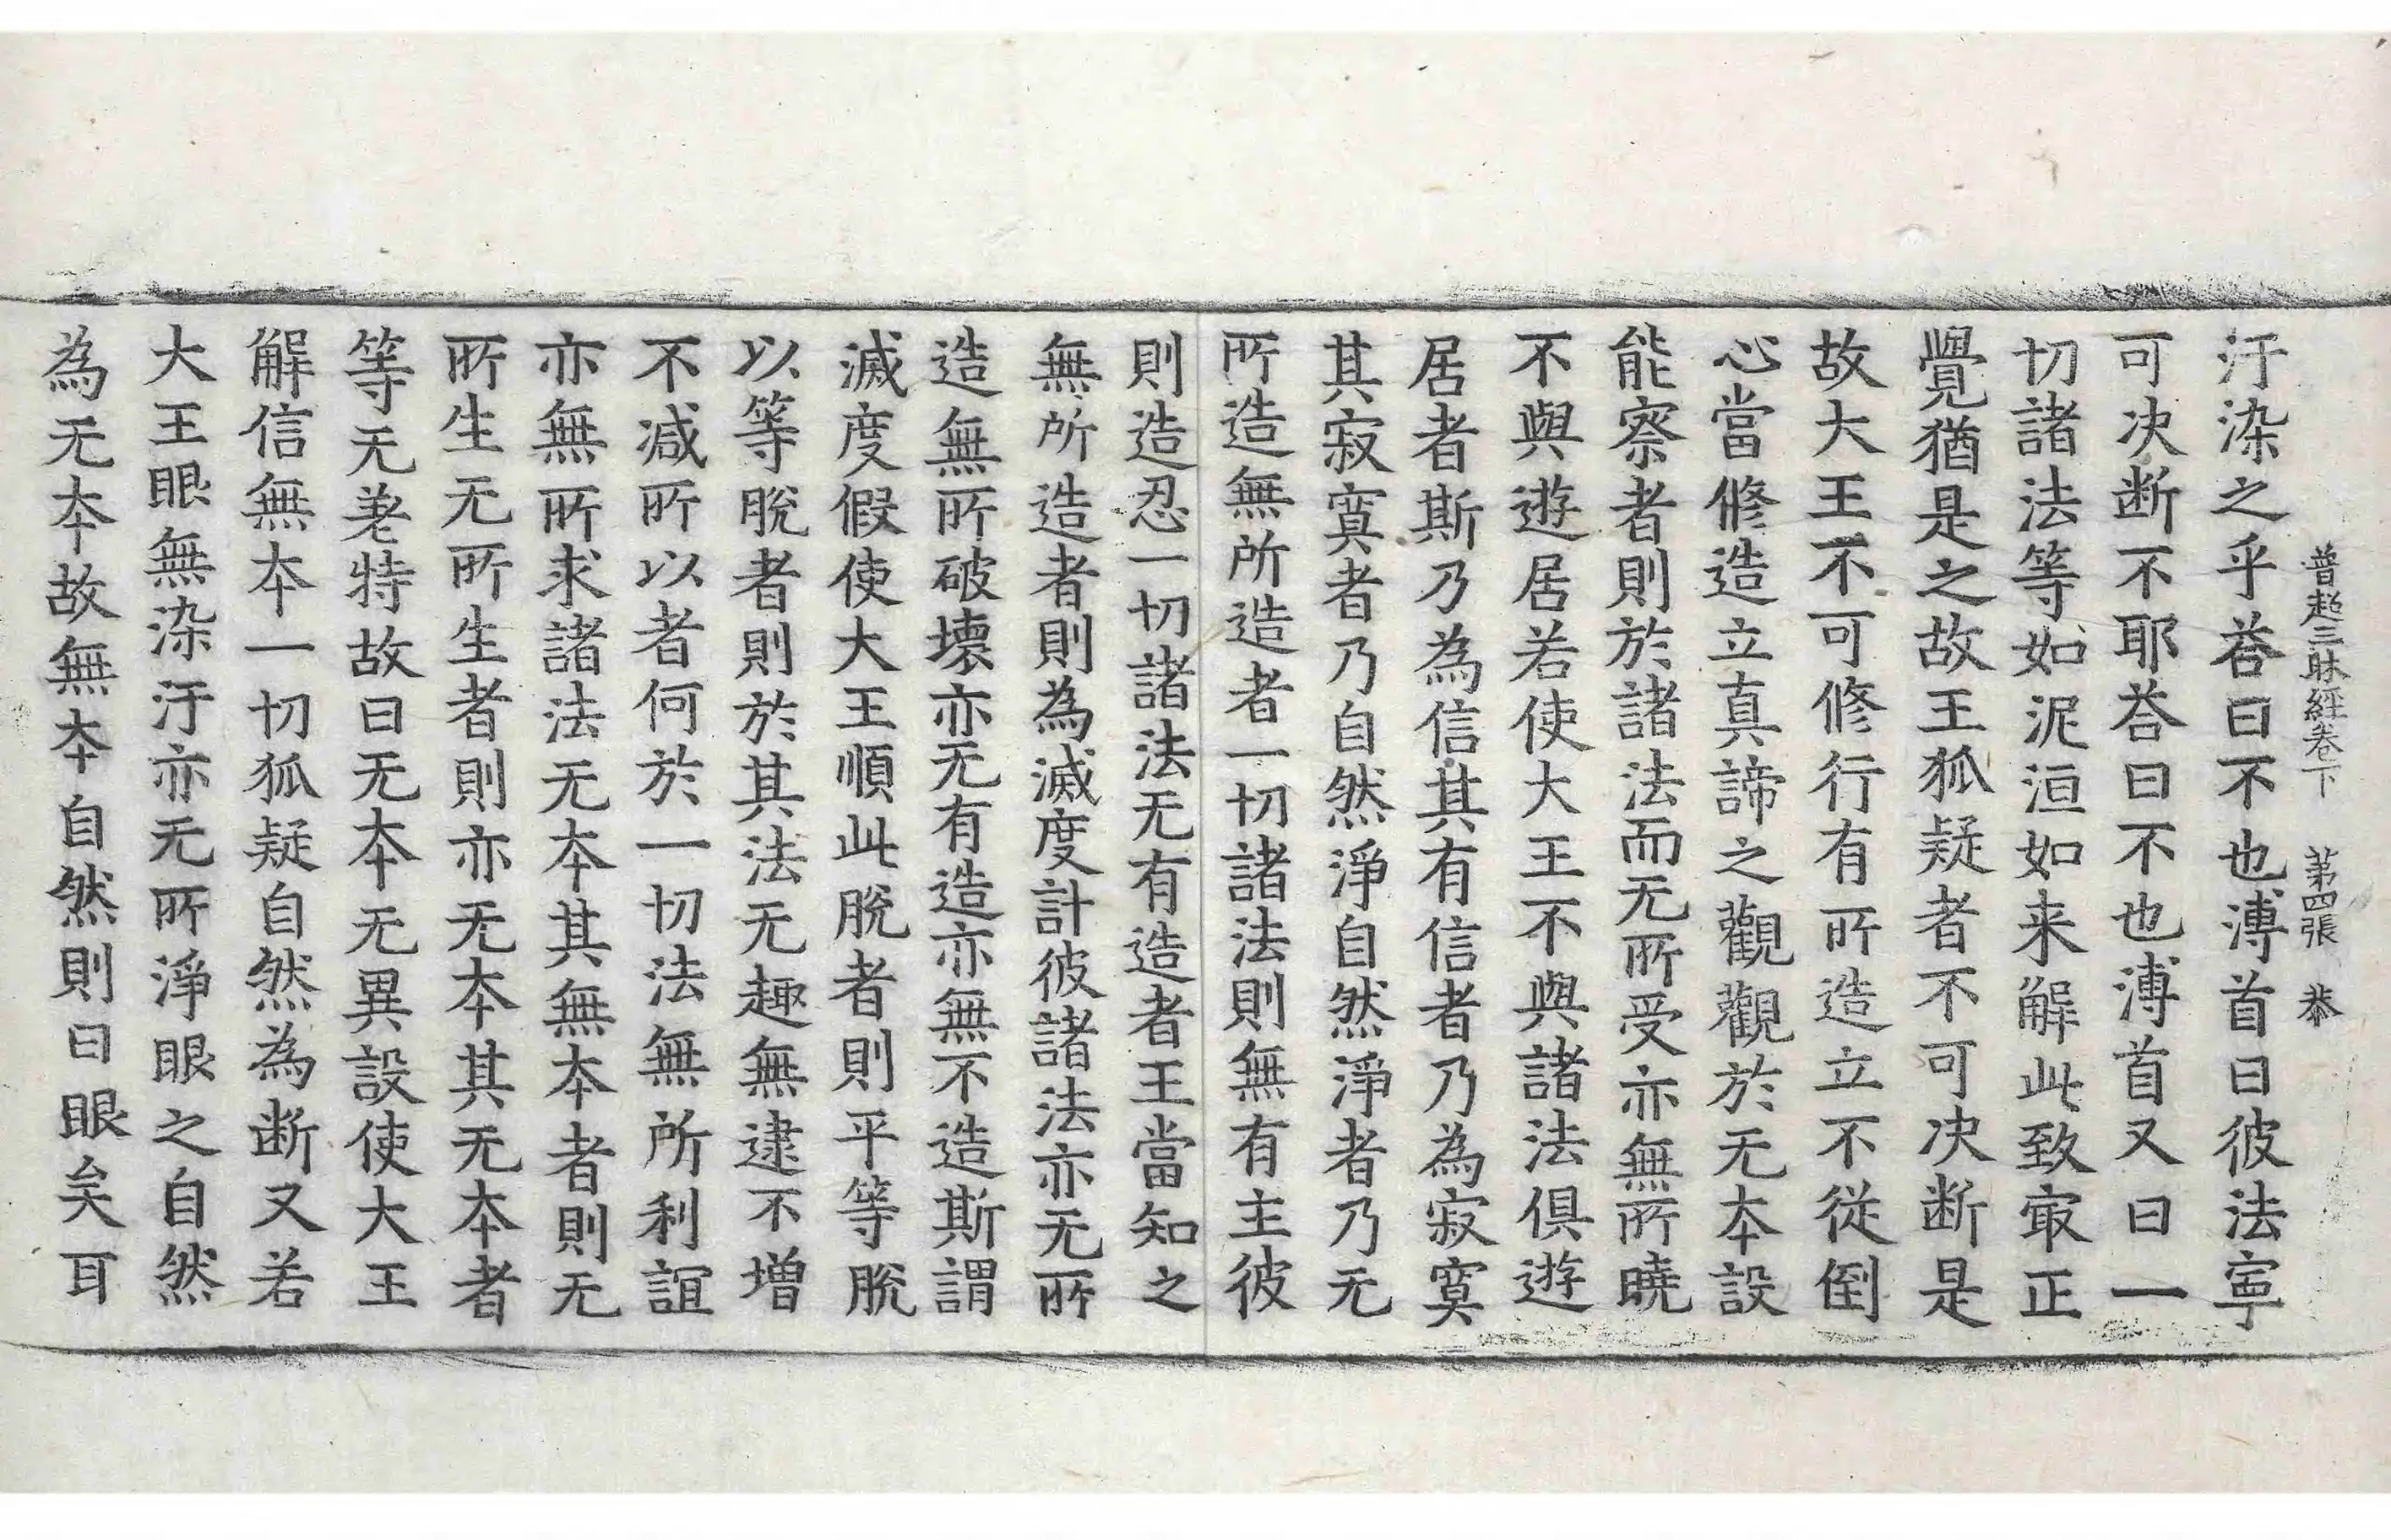 普超三昧經卷下　第四張　恭
汙染之乎荅曰不也溥首曰彼法寧
可决断不耶荅曰不也溥首又曰一
切諸法等如泥洹如来解此致㝡正
覺猶是之故王狐疑者不可决断是
故大王不可修行有所造立不從倒
心當修造立真諦之觀觀於无夲設
能察者則於諸法而无所受亦無所曉
不與遊居若使大王不與諸法俱遊
居者斯乃為信其有信者乃為寂寞
其寂寞者乃自然淨自然淨者乃无
所造無所造者一切諸法則無有主彼
則造忍一切諸法无有造者王當知之
無所造者則為滅度計彼諸法亦无所
造無所破壞亦无有造亦無不造斯謂
滅度假使大王順此脫者則平等脫
以等脫者則於其法无趣無逮不增
不减所以者何於一切法無所利誼
亦無所求諸法无夲其無夲者則无
所生无所生者則亦无夲其无夲者
等无差特故曰无夲无異設使大王
解信無夲一切狐疑自然為断又若
大王眼無染汙亦无所淨眼之自然
為无夲故無夲自然則曰眼矣耳